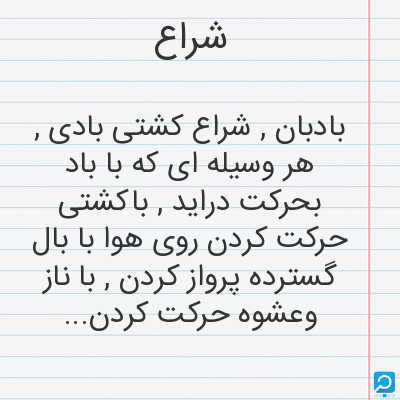 شراع
بادبان , شراع کشتی بادی ,
هر وسیله ای که با باد
بحرکت دراید , باکشتی
حرکت کردن روی هوا با بال
گسترده پرواز کردن , با ناز
وعشوه حرکت کردن...